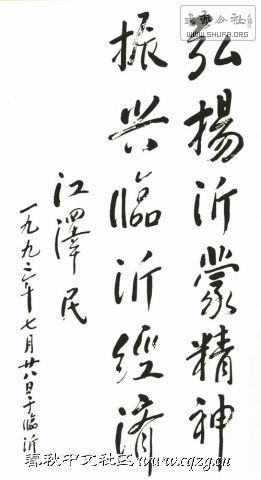 弘揚沂蒙精神
振兴臨沂經济
江澤民
一九九二年七月廿八日于臨沂
WWW.SHUFA.ORG
春秋中文社区www.cqzg.cn